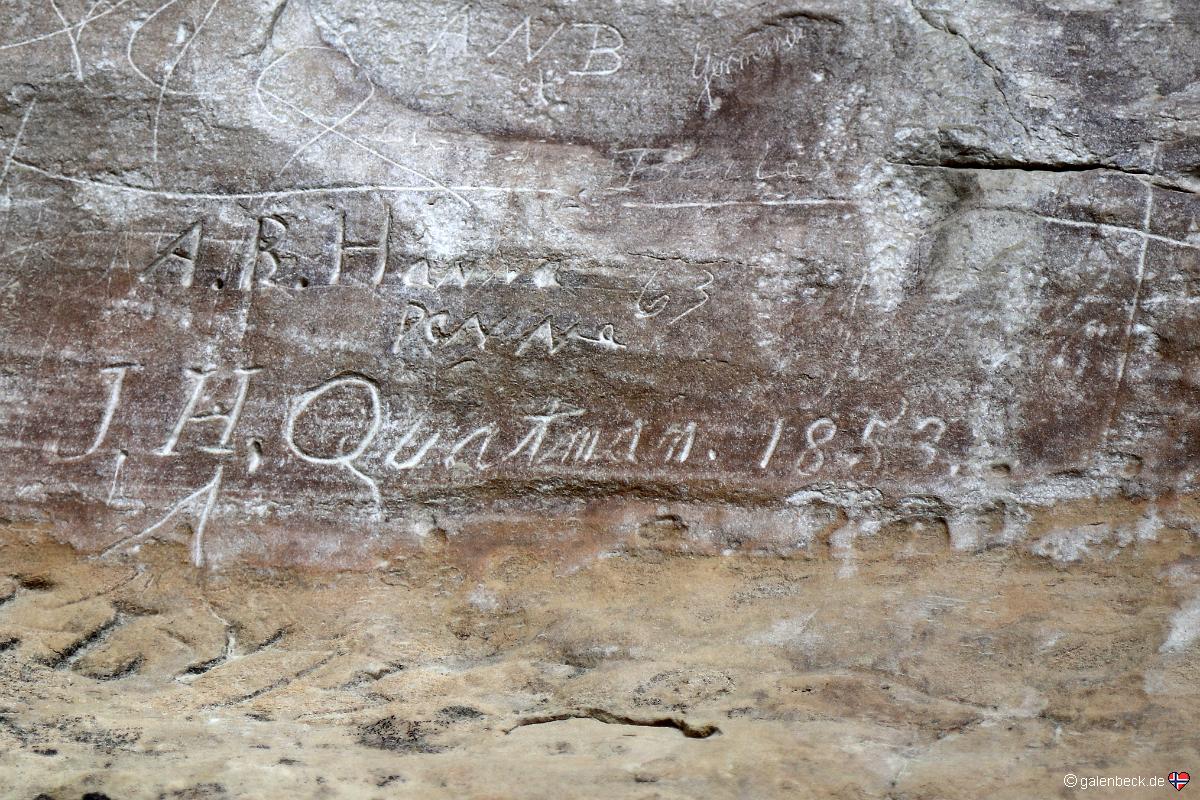 ANB
Belle
A.B. Hanna
63
Penna
J. H. Quatman. 1853.
© galenbeck.de